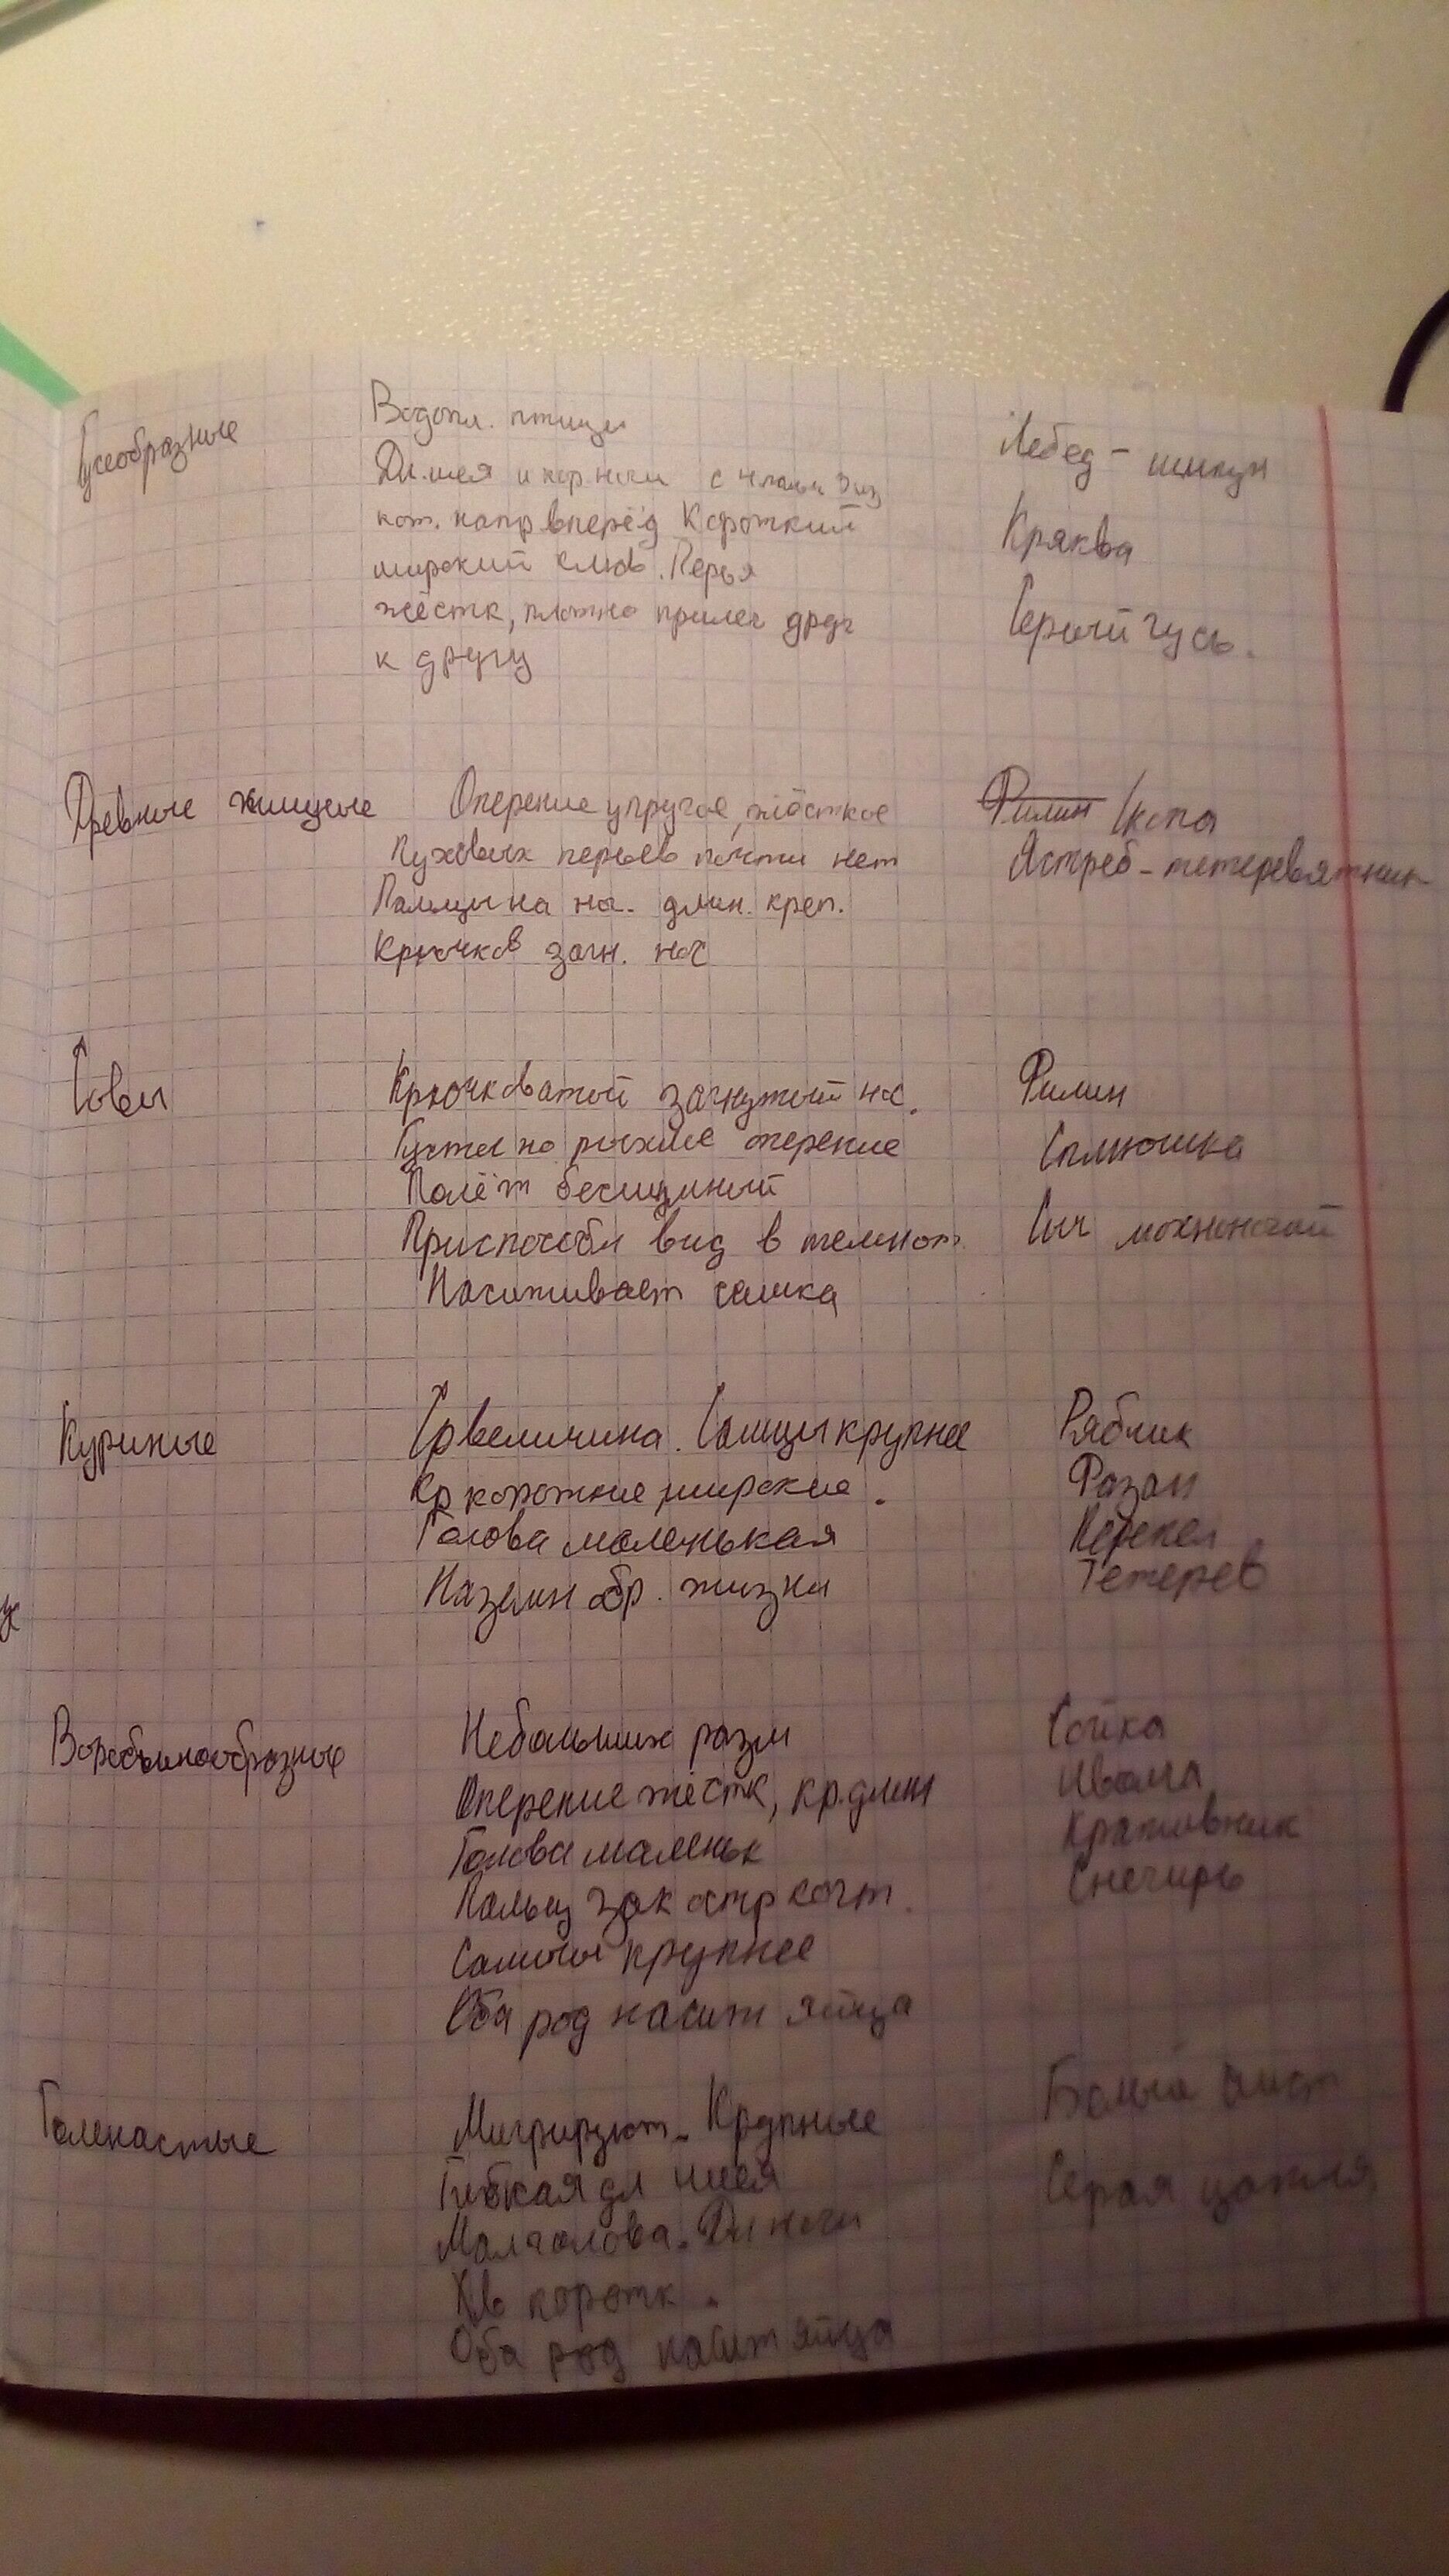 Гусеобразные
Водопл. птицы
Дл. шея и кор ноги с 4 пальц 3 из
кот. напр вперёд Короткий
широкий клюв. Перья
жёстк, плотно прилег друг
к другу
Лебед - шипун
Кряква
Серый гусь.
Древные хищные
Оперение упругое, жёсткое
Пуховых перьев почти нет
Пальцы на но. длин. креп.
Крючков загн. нос
Филин Скопа
Ястреб - тетеревятник
Совы
Крючковатый загнутый нос.
Густое но рыхлое оперение
Полёт бесшумный
Приспособл вид в темнот
Насиживает самка
Филин
Сплюшка
Сыч мохноногий
Куриные
Ср величина. Самцы крупнее
Кр короткие, широкие.
Голова маленькая
Наземн обр. жизни
Рябчик
Фазан
Перепел
Тетерев
Воробьинообразные
Небольших разм
Оперение жёстк, кр. длин
Голова маленьк
Пальц зак остр когт.
Самцы крупнее
Оба род насиж яйца
Сойка
Иволга
Крапивник
Снегирь
Голенастые
Мигрируют. Крупные
Гибкая дл шея
Мал голова. Дл ноги
Хв коротк.
Оба род насиж яйца
Белый аист
Серая цапля